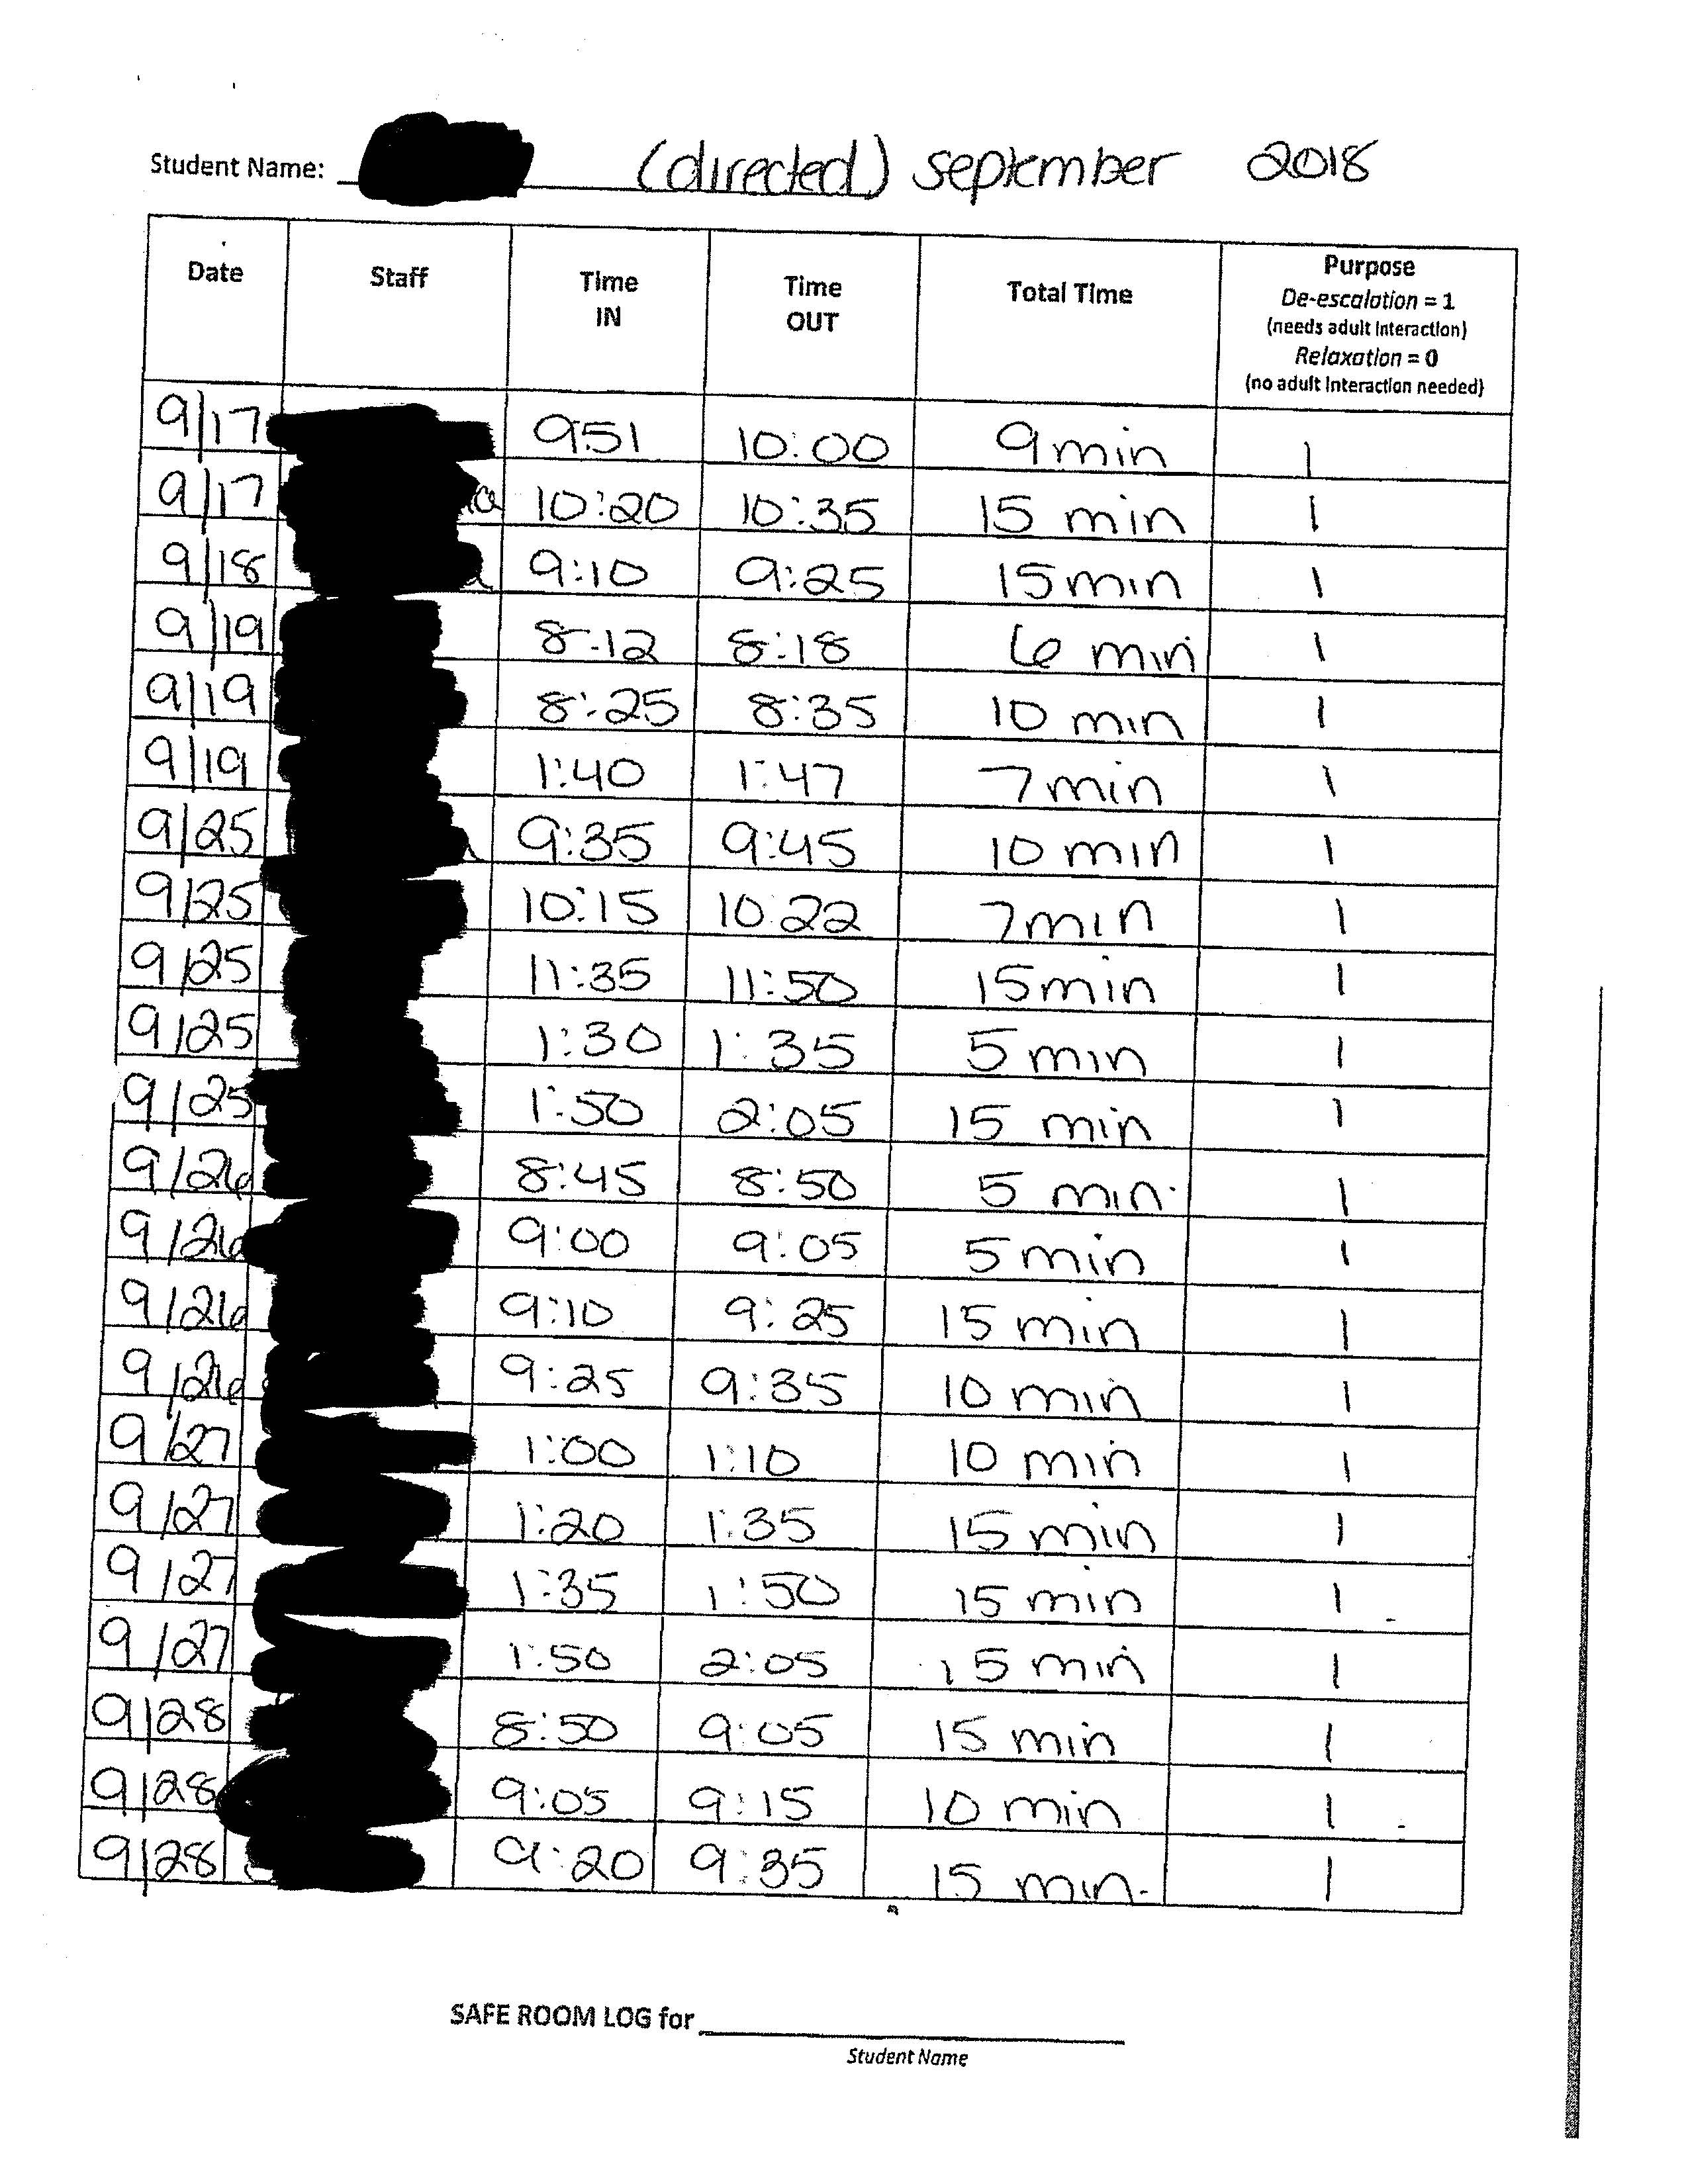 Student Name: (directed) september 2018
Date Staff Time IN Time OUT Total Time Purpose
De-escalation = 1
(needs adult interaction)
Relaxation = 0
(no adult interaction needed)
9/17 9:51 10:00 9 min 1
9/17 10:20 10:35 15 min 1
9/18 9:10 9:25 15 min 1
9/19 8:12 8:18 6 min 1
9/19 8:25 8:35 10 min 1
9/19 1:40 1:47 7 min 1
9/25 9:35 9:45 10 min 1
9/25 10:15 10:22 7 min 1
9/25 11:35 11:50 15 min 1
9/25 1:30 1:35 5 min 1
9/25 1:50 2:05 15 min 1
9/26 8:45 8:50 5 min. 1
9/26 9:00 9:05 5 min 1
9/26 9:10 9:25 15 min 1
9/26 9:25 9:35 10 min 1
9/27 1:00 1:10 10 min 1
9/27 1:20 1:35 15 min 1
9/27 1:35 1:50 15 min 1
9/27 1:50 2:05 15 min 1
9/28 8:50 9:05 15 min 1
9/28 9:05 9:15 10 min 1
9/28 9:20 9:35 15 min. 1
SAFE ROOM LOG for
Student Name